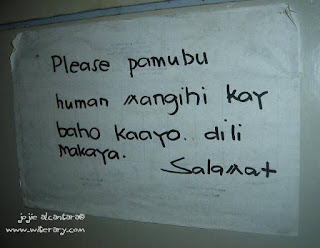 Please pamubu
human mangihi kay
baho kaayo. dili
makaya.
Salamat
jojie alcantara©
www.witerary.com